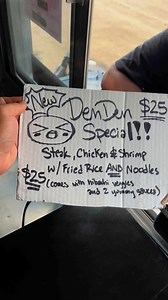 New
DenDen $25
Special!!
Steak, Chicken & Shrimp
W/ Fried Rice AND Noodles
$25 (comes with hibachi veggies
and 2 yummy sauces)